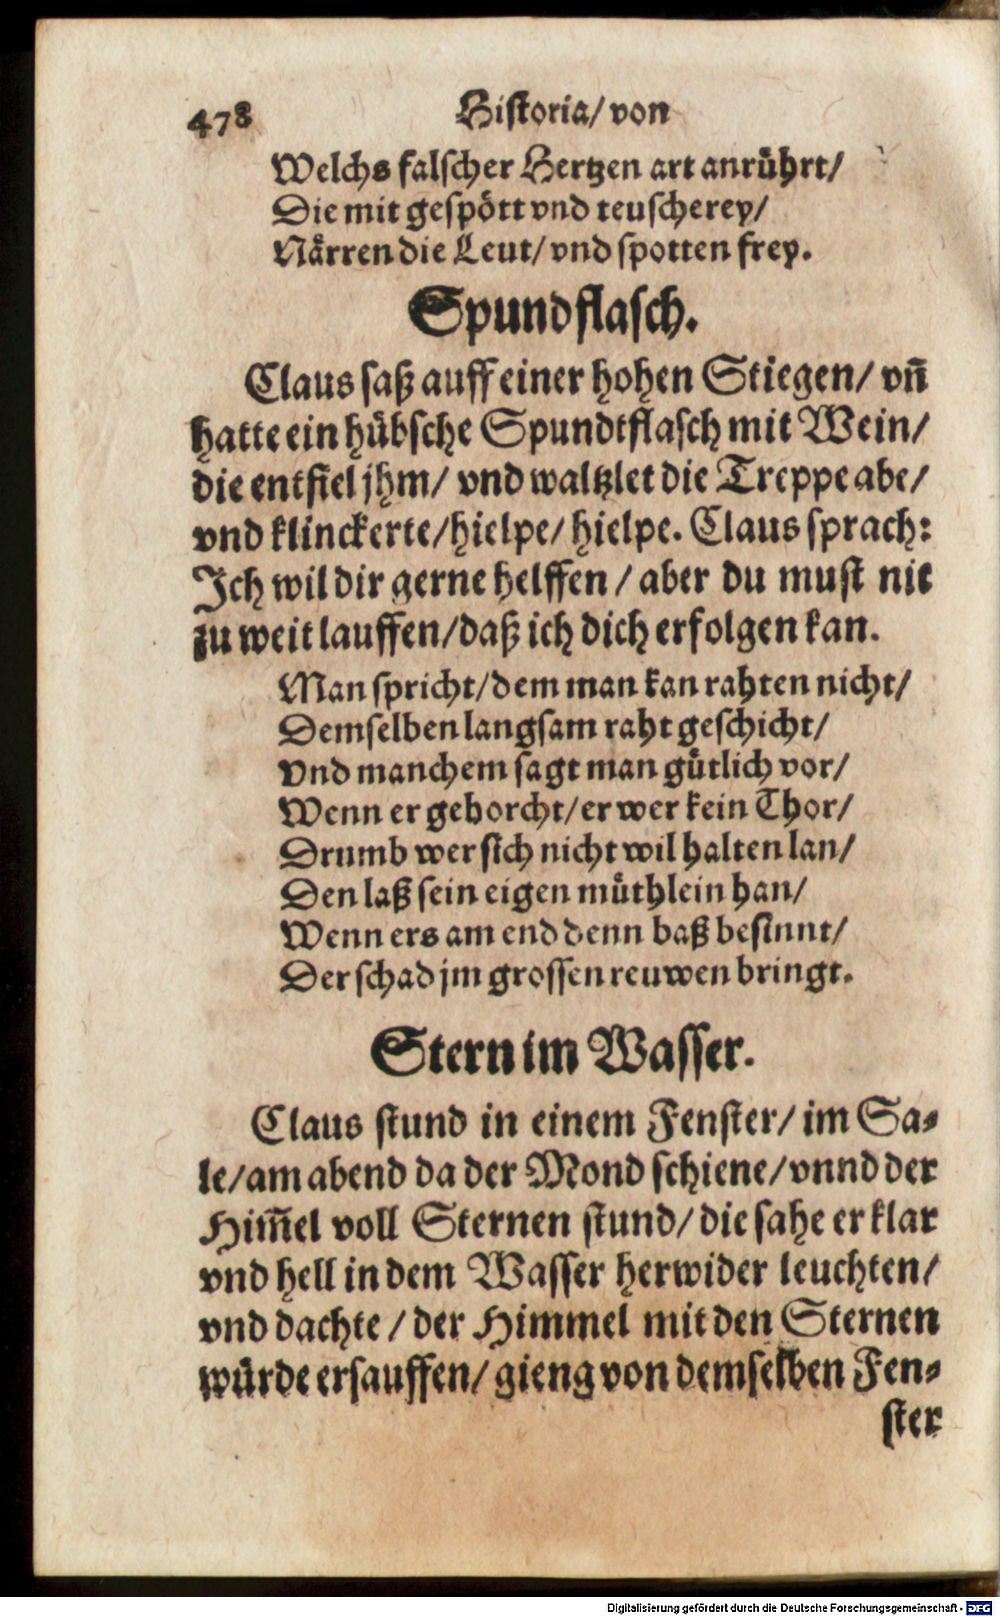 478 Historia/ von
Welchs falscher Hertzen art anrührt/
Die mit gespött vnd teuscherey/
Närren die Leut/ vnd spotten frey.
Spundflasch.
Claus saß auff einer hohen Stiegen/ vñ
hatte ein hübsche Spundtflasch mit Wein/
die entfiel jhm/ vnd waltzlet die Treppe abe/
vnd klinckerte/ hielpe/ hielpe. Claus sprach:
Ich wil dir gerne helffen / aber du must nit
zu weit lauffen/ daß ich dich erfolgen kan.
Man spricht/ dem man kan rahten nicht/
Demselben langsam raht geschicht/
Vnd manchem sagt man gütlich vor/
Wenn er gehorcht/ er wer kein Thor/
Drumb wer sich nicht wil halten lan/
Den laß sein eigen müthlein han/
Wenn ers am end denn baß besinnt/
Der schad jm grossen reuwen bringt.
Stern im Wasser.
Claus stund in einem Fenster/ im Sa-
le/ am abend da der Mond schiene/ vnnd der
Him̃el voll Sternen stund/ die sahe er klar
vnd hell in dem Wasser herwider leuchten/
vnd dachte / der Himmel mit den Sternen
würde ersauffen/ gieng von demselben Fen-
ster
Digitalisierung gefördert durch die Deutsche Forschungsgemeinschaft - DFG